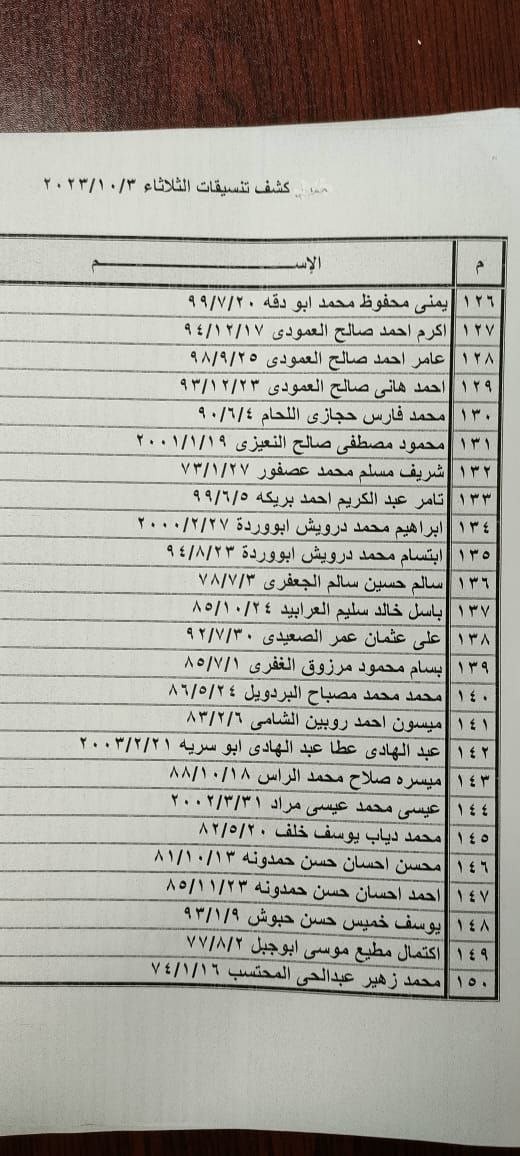 كشف تنسيقات الثلاثاء ٢٠٢٣/١٠/٣
م الإســـــــــــــــــــم
١٢٦ يمنى محفوظ محمد ابو دقه ٩٩/٧/٢٠
١٢٧ اكرم احمد صالح العمودى ٩٤/١٢/١٧
١٢٨ عامر احمد صالح العمودى ٩٨/٩/٢٥
١٢٩ احمد هانى صالح العمودى ٩٣/١٢/٢٣
١٣٠ محمد فارس حجازى اللحام ٩٠/٦/٤
١٣١ محمود مصطفى صالح النعيزى ٢٠٠١/١/١٩
١٣٢ شريف مسلم محمد عصفور ٧٣/١/٢٧
١٣٣ تامر عبد الكريم احمد بريكه ٩٩/٦/٥
١٣٤ ابراهيم محمد درويش ابووردة ٢٠٠٠/٢/٢٧
١٣٥ ابتسام محمد درويش ابووردة ٩٤/٨/٢٣
١٣٦ سالم حسين سالم الجعفرى ٧٨/٧/٣
١٣٧ باسل خالد سليم العرابيد ٨٥/١٠/٢٤
١٣٨ على عثمان عمر الصعيدى ٩٢/٧/٣٠
١٣٩ بسام محمود مرزوق الغفرى ٨٥/٧/١
١٤٠ محمد محمد مصباح البردويل ٨٦/٥/٢٤
١٤١ ميسون احمد روبين الشامى ٨٣/٢/٦
١٤٢ عبد الهادى عطا عبد الهادى ابو سريه ٢٠٠٣/٢/٢١
١٤٣ ميسره صلاح محمد الراس ٨٨/١٠/١٨
١٤٤ عيسى محمد عيسى مراد ٢٠٠٢/٣/٣١
١٤٥ محمد دياب يوسف خلف ٨٢/٥/٢٠
١٤٦ محسن احسان حسن حمدونه ٨١/١٠/١٣
١٤٧ احمد احسان حسن حمدونه ٨٥/١١/٢٣
١٤٨ يوسف خميس حسن حبوش ٩٣/١/٩
١٤٩ اكتمال مطيع موسى ابوجبل ٧٧/٨/٢
١٥٠ محمد زهير عبدالحى المحتسب ٧٤/١/١٦